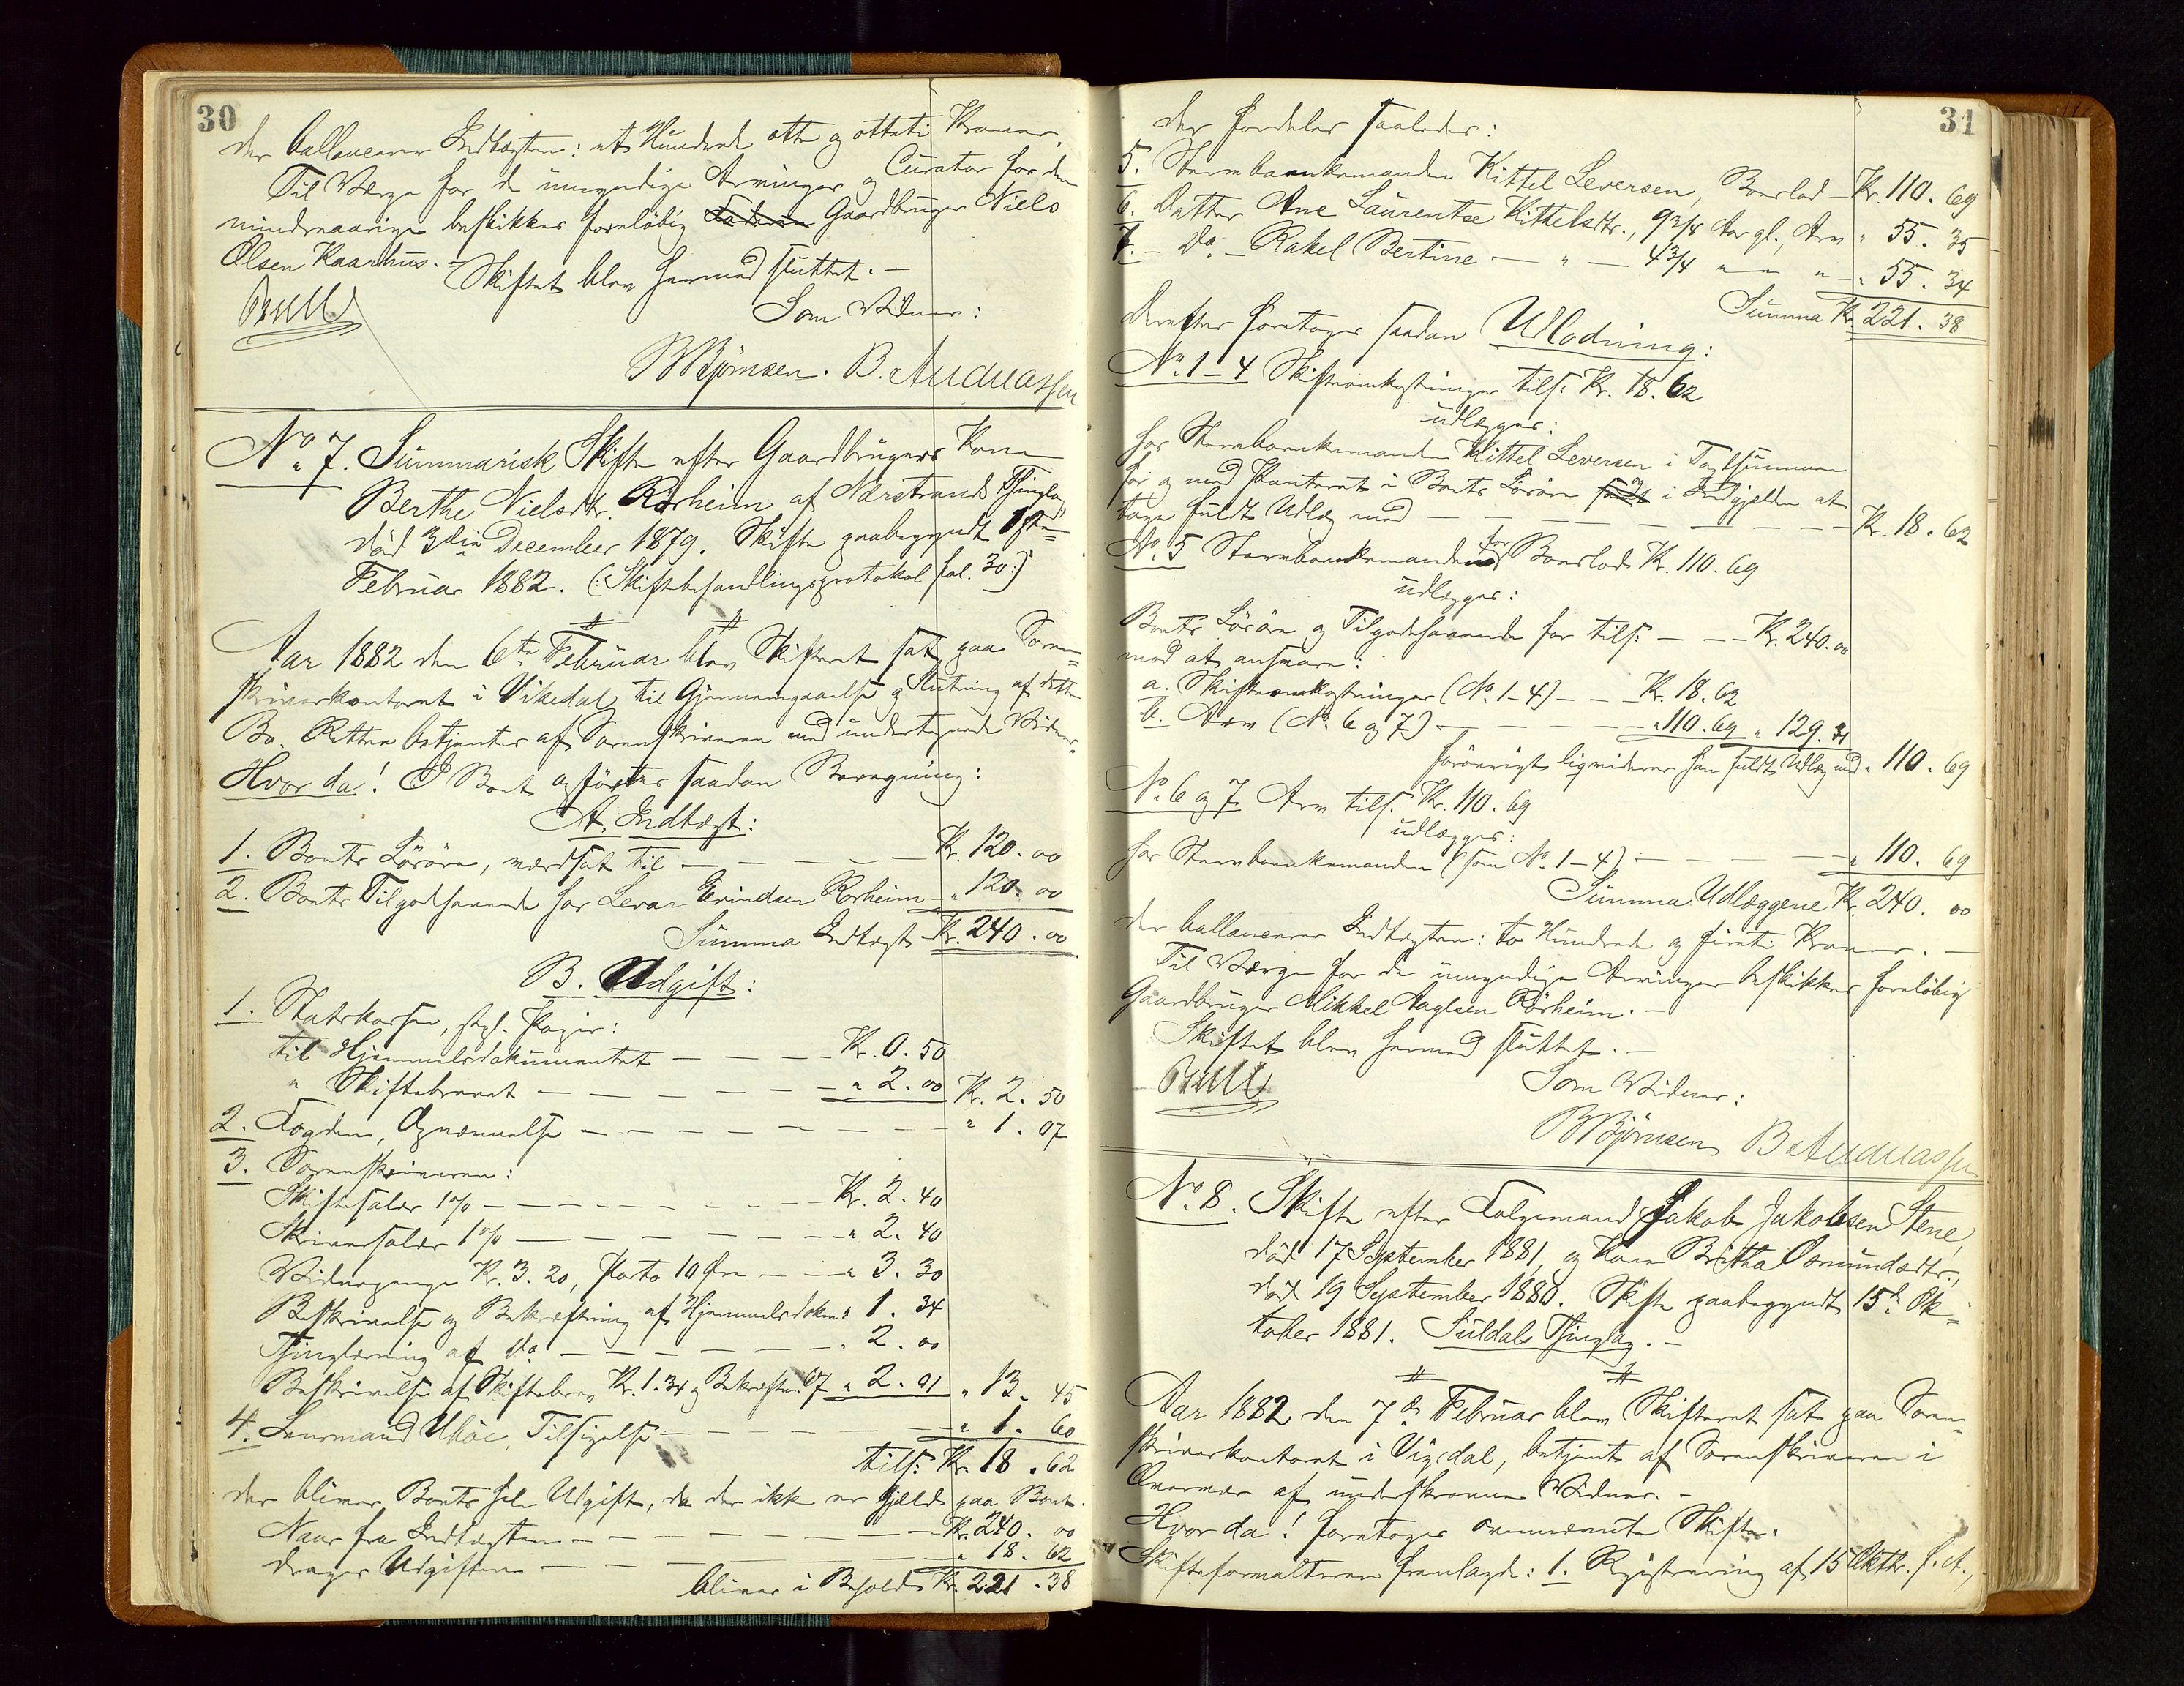 30
der ballancerer Indtægten: et Hundrede otte og otteti Kroner.
Til Værge for de umyndige Arvinger og Curator for den
mindreaarige beskikkes foreløbig Gaardbruger Niels
Olsen Kaarhus. –
Skiftet blev hermed sluttet. –
Som Vidner:
BBjörnsen. B. Andreassen
No 7. Summarisk Skifte efter Gaardbrugers Kone
Berthe Nielsdtr. Rørheim af Nærstrands Thinglag,
död 3die December 1879. Skifte paabegyndt
Februar 1882. (: Skiftebehandlingsprotokol fol. 30:)
Aar 1882 den 6te Februar blev Skifteret sat paa Soren-
skriverkontoret i Vikedal til Gjennemgaaelse og Slutning af dette
Bo. Retten betjentes af Sorenskriveren med undertegnede Vidner.
Hvor da! I Boet opførtes saadan Beregning:
A. Indtægt:
1. Boets Løsøre, værdsat til — — — — — Kr. 120. 00
2. Boets Tilgodehavende hos Levar Eivindsen Rørheim — " 120. 00
Summa Indtægt Kr. 240. 00
B. Udgift:
1. Statskassen, stpl. Papir:
til Hjemmelsdokumentet — — — — Kr. 0. 50
" Skiftebrevet — — — — — " 2. 00 Kr. 2. 50
2. Fogden, Opnævnelse — — — — — — " 1. 07
3. Sorenskriveren:
Skiftesalær 1% — — — — — — Kr. 2. 40
Skriversalær 1% — — — — — — " 2. 40
Vidnepenge Kr. 3. 20, Porto 10 Øre — — " 3. 30
Beskrivelse og Bekræftning af Hjemmelsdokum. " 1. 34
Thinglæsning af do — — — — — " 2. 00
Beskrivelse af Skiftebrev Kr. 1. 34 og Bekræftn. 67 " 2. 01 " 13. 45
4. Lensmand Uhöe, Tilsigelse — — — — — " 1. 60
tils: Kr. 18. 62
der bliver Boets hele Udgift, da der ikke er Gjeld paa Boet.
Naar fra Indtægten — — — — — — Kr. 240. 00
drages Udgiften — — — — — — " 18. 62
bliver i Behold Kr. 221. 38
31
der fordeles saaledes:
5. Stervboenkemanden Kittel Leversen, Boeslod — Kr. 110. 69
6. Datter Ane Laurentse Kittelsdtr., 9 3/4 Aar gl., Arv " 55. 35
7. – Do. – Rakel Bertine — " — 4 3/4 " " " — " 55. 34
Summa Kr. 221. 38
Derefter foretoges saadan Udlodning:
No. 1–4 Skifteomkostninger tils. Kr. 18. 62
udlægges:
hos Stervboenkemanden Kittel Leversen i Tagtsummen
for og med Panteret i Boets Løsøre og i Indgjelden at
tage fuldt Udlæg med — — — — — — — Kr. 18. 62
No. 5 Stervboenkemanden for Boeslod Kr. 110. 69
udlægges:
Boets Løsøre og Tilgodehavende for tils: — — — Kr. 240. 00
mod at ansvare:
a. Skifteomkostninger (No. 1–4) — — Kr. 18. 62
b. Arv (No. 6 og 7) — — — — " 110. 69 " 129. 31
forøvrigt liqviderer han fuldt Udlæg med " 110. 69
No. 6 og 7 Arv tils. Kr. 110. 69
udlægges:
hos Stervboenkemanden (som No. 1–4): — — — " 110. 69
Summa Udlæggene Kr. 240. 00
der ballancerer Indtægten: to Hundrede og firti Kroner. –
Til Værge for de umyndige Arvinger beskikkes foreløbig
Gaardbruger Mikkel Aagesen Rørheim. –
Skiftet blev hermed sluttet. –
Som Vidner:
BBjörnsen B. Andreassen
No. 8. Skifte efter Folgemand Jakob Jakobsen Stene,
död 17 September 1881, og Kone Britha Osmundsdtr.,
död 19 September 1880. Skifte paabegyndt 15de Ok-
tober 1881. Suldals Thinglag. –
Aar 1882 den 7de Februar blev Skifteret sat paa Soren-
skriverkontoret i Vigedal, betjent af Sorenskriveren i
Overvær af underskrevne Vidner. –
Hvor da! foretoges ovennævnte Skifte.
Skifteforvalteren fremlagde: 1. Registrering af 15 Oktbr. f. A.,